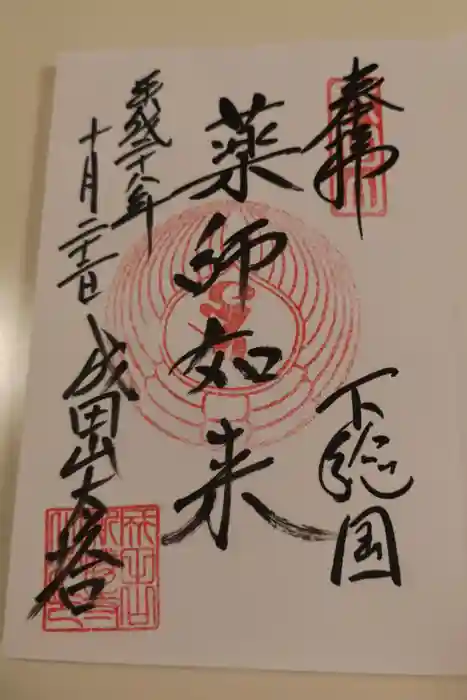 奉拝
下総国
薬師如来
平成二十八年
十月二十三日
成田山大塔